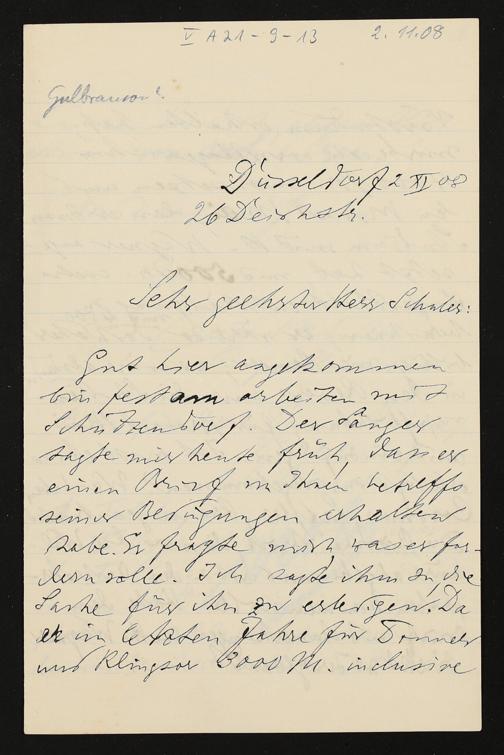 V A 21 - 9 - 13
2. 11. 08
Gulbranson?
Düsseldorf 2 XI 08
26 Deichstr.
Sehr geehrter Herr Schuler:
Gut hier angekommen
bin fest am arbeiten mit
Schützendorf. Der Sänger
sagte mir heute früh, dass er
einen Brief von Ihnen betreffs
seiner Bedingungen erhalten
habe. Er fragte mich, was er for-
dern solle. Ich sagte ihm zu, die
Sache für ihn zu erledigen. Da
er im letzten Jahre für Donner
und Klingsor 3000 M. inclusive